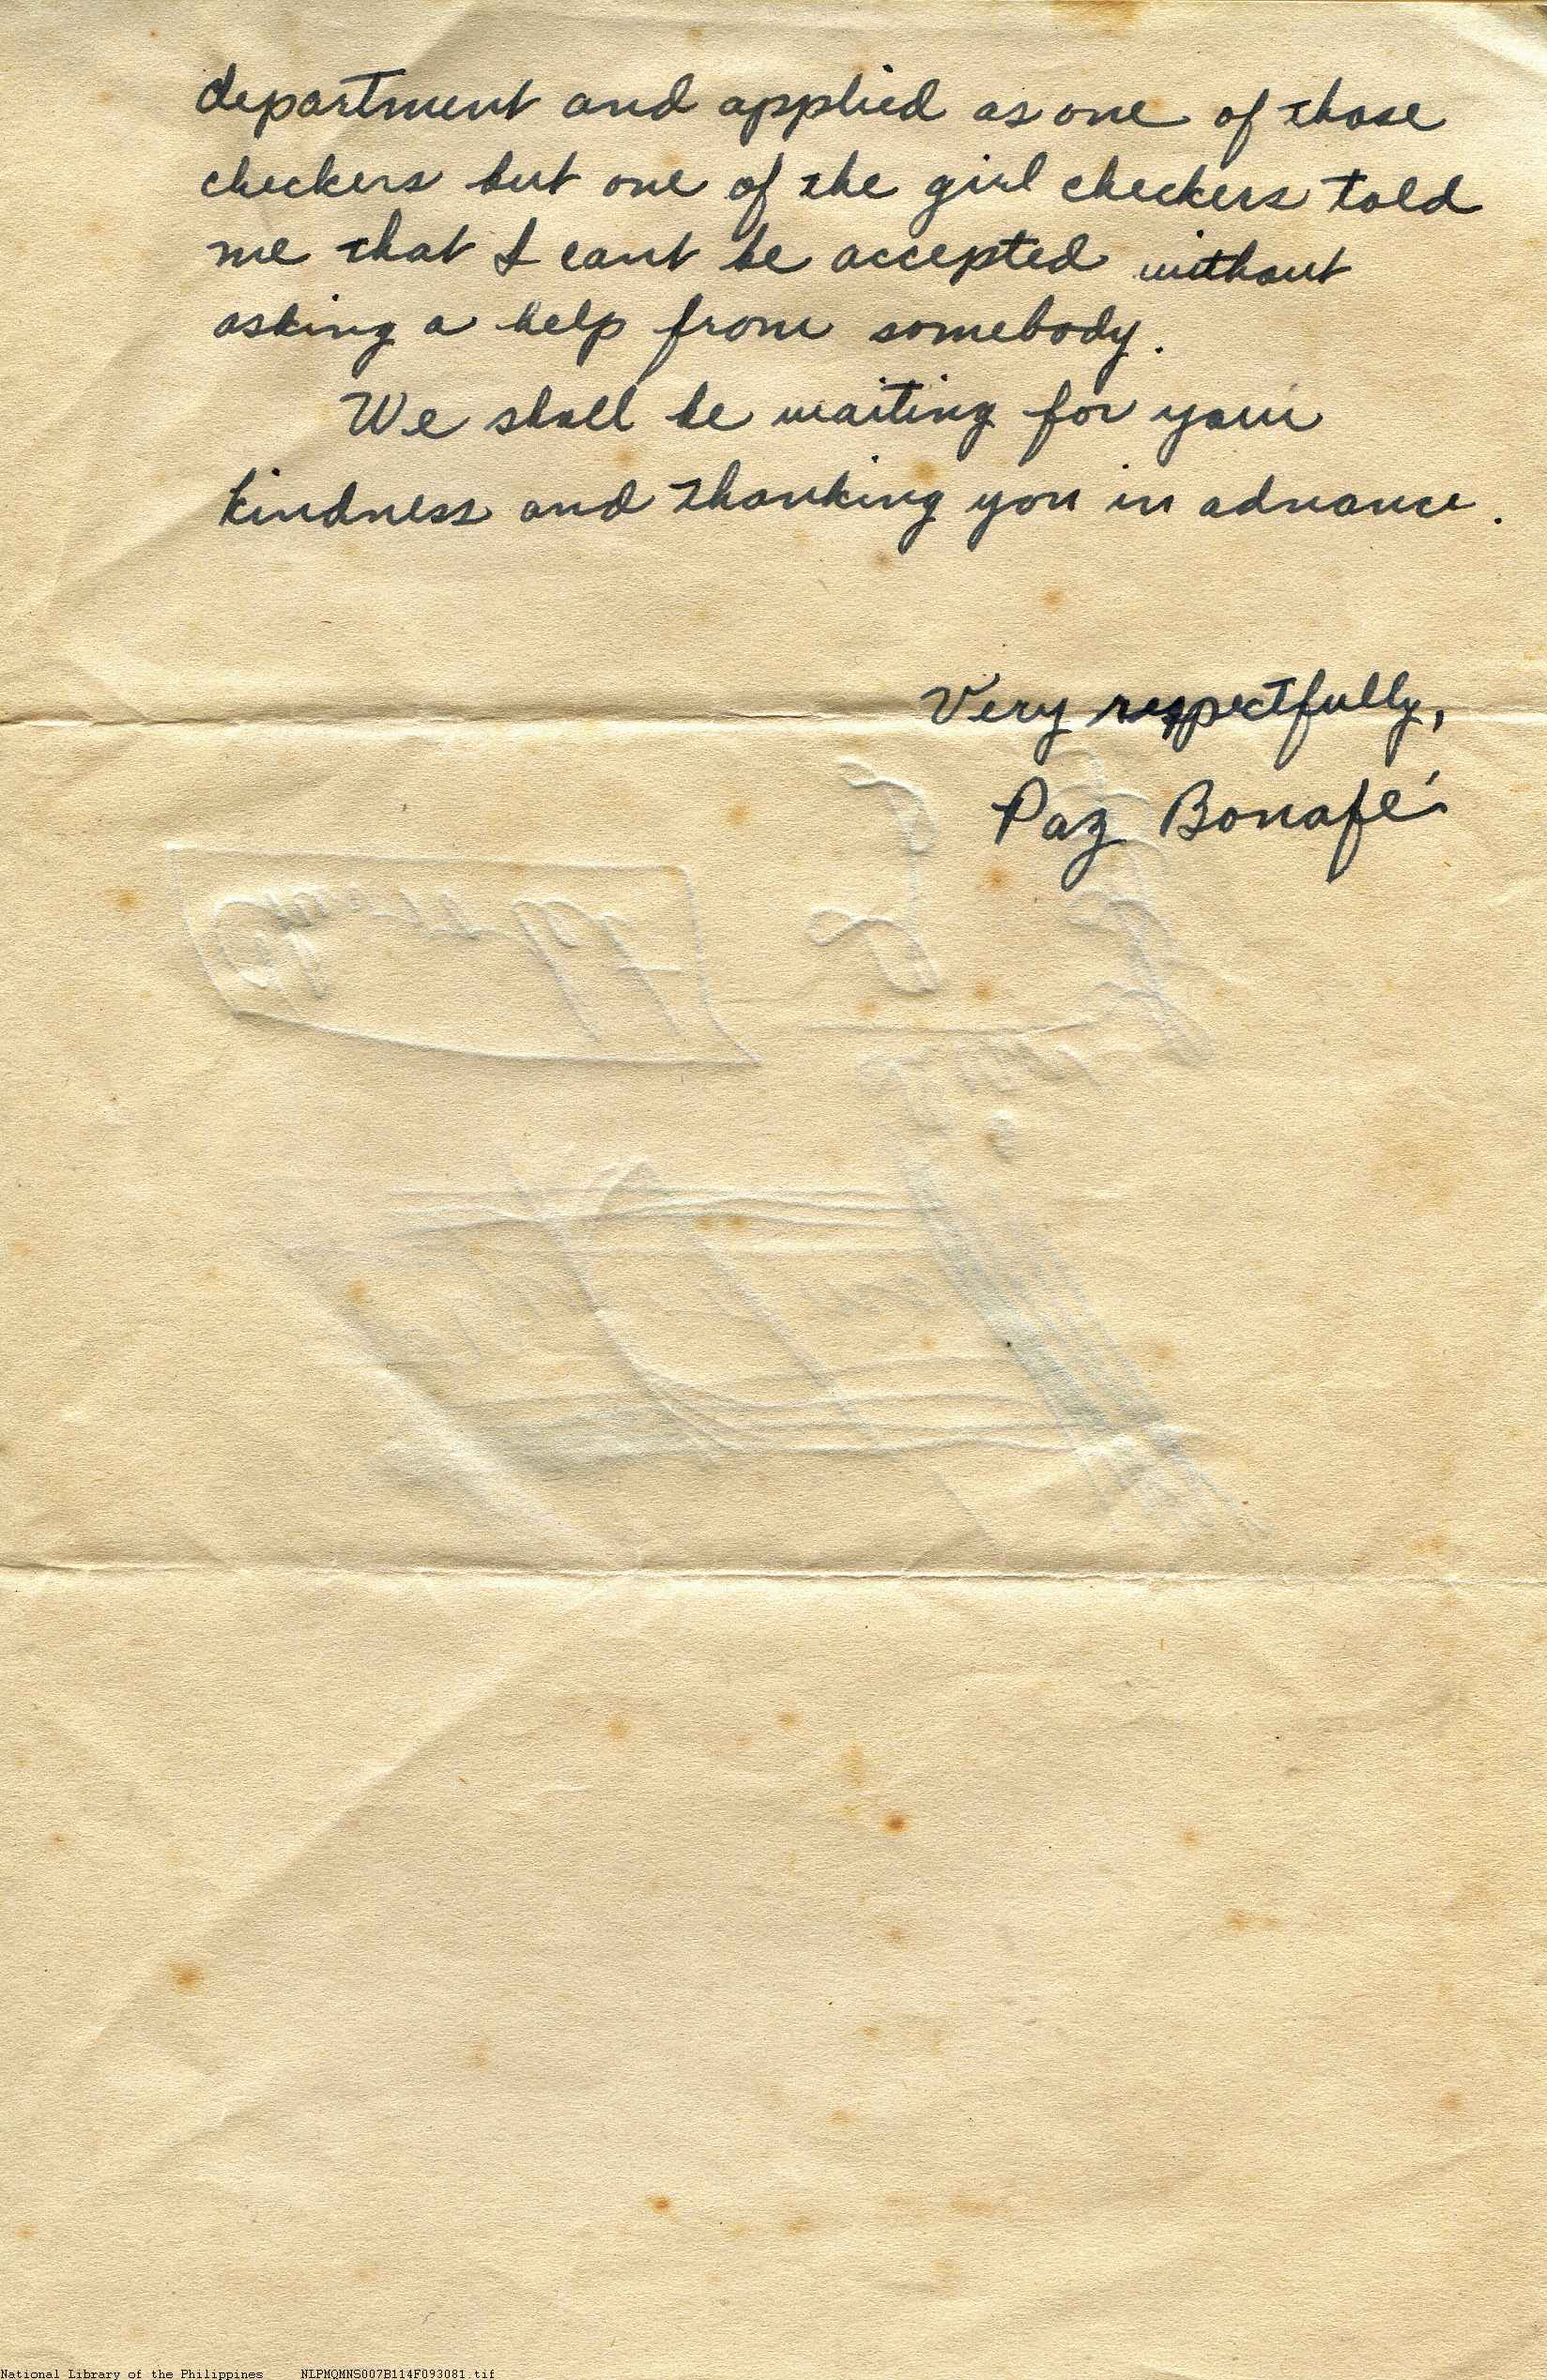 department and applied as one of those
checkers but one of the girl checkers told
me that I cant be accepted without
asking a help from somebody.
We shall be waiting for your
kindness and thanking you in advance.
Very respectfully,
Paz Bonafé
National Library of the Philippines NLPMQMNS007B114F093081.tif